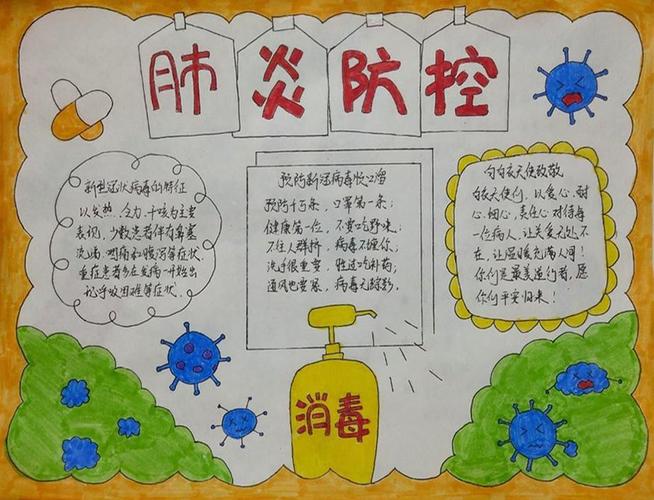 肺炎防控
新型冠状病毒的特征
以发热、乏力、干咳为主要
表现，少数患者伴有鼻塞
流涕、咽痛和腹泻等症状.
重症患者多在发病一周后出
现呼吸困难等症状.
预防新冠病毒顺口溜
预防千万条，口罩第一条；
健康第一位，不要吃野味；
不往人群挤，病毒不缠你；
洗手很重要，胜过吃补药；
通风也要紧，病毒无踪影。
向白衣天使致敬
白衣天使们，以爱心、耐
心、细心、责任心对待每
一位病人，让关爱无处不
在，让温暖充满人间！
你们是最美逆行者，愿
你们平安归来！
消毒